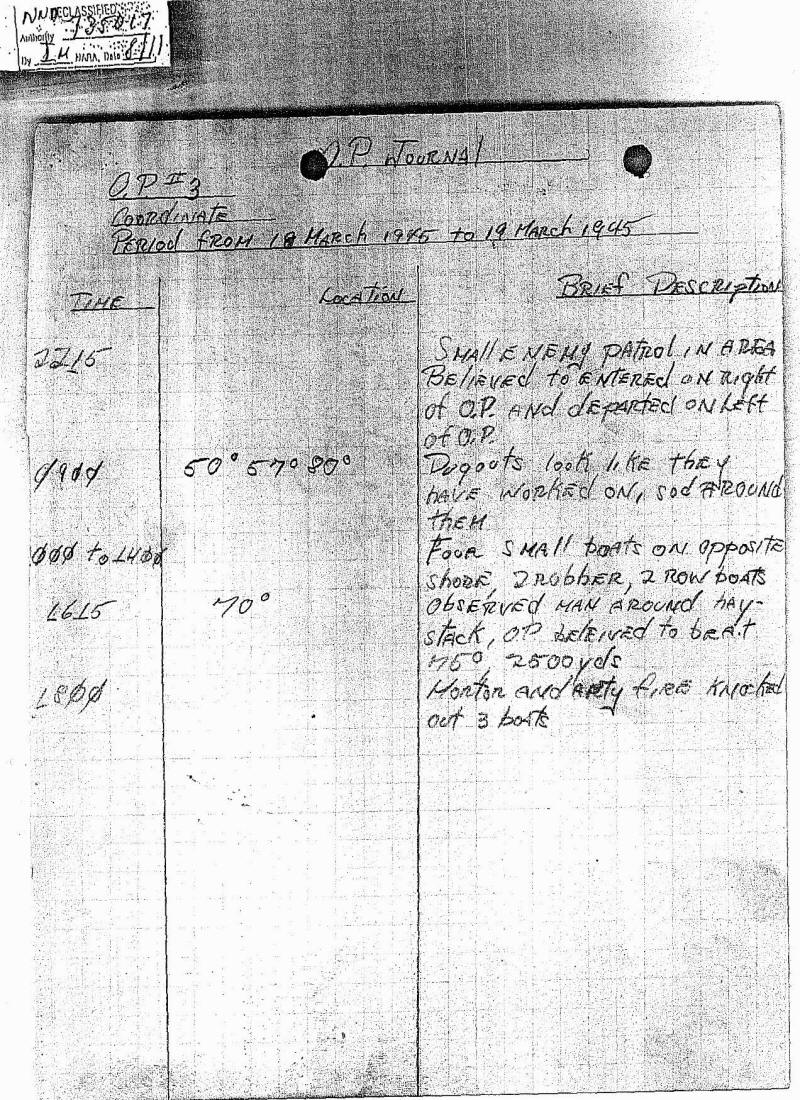 NND DECLASSIFIED
Authority 735017
By NARA, Date 8/11
O.P. JOURNAL
O.P # 3
COORDINATE
PERIOD FROM 18 MARCH 1945 to 19 MARCH 1945
TIME LOCATION BRIEF DESCRIPTION
2215 SMALL ENEMY PATROL IN AREA
BELIEVED to ENTERED ON Right
of O.P. AND dEPARTED ON LEFT
of O.P.
0900 50° 57° 80° Dugouts look like they
HAVE WORKED ON, sod AROUND
tHEM
000 to 1400 FOUR SMALL BOATS ON OPPOSITE
SHORE, 2 RUBBER, 2 ROW BOATS
1615 70° OBSERVED MAN AROUND hay-
stack, OP BELEIVED to be at
75°, 2500 yds
1800 Mortor and ARTy fIRE KNOCKED
out 3 boats